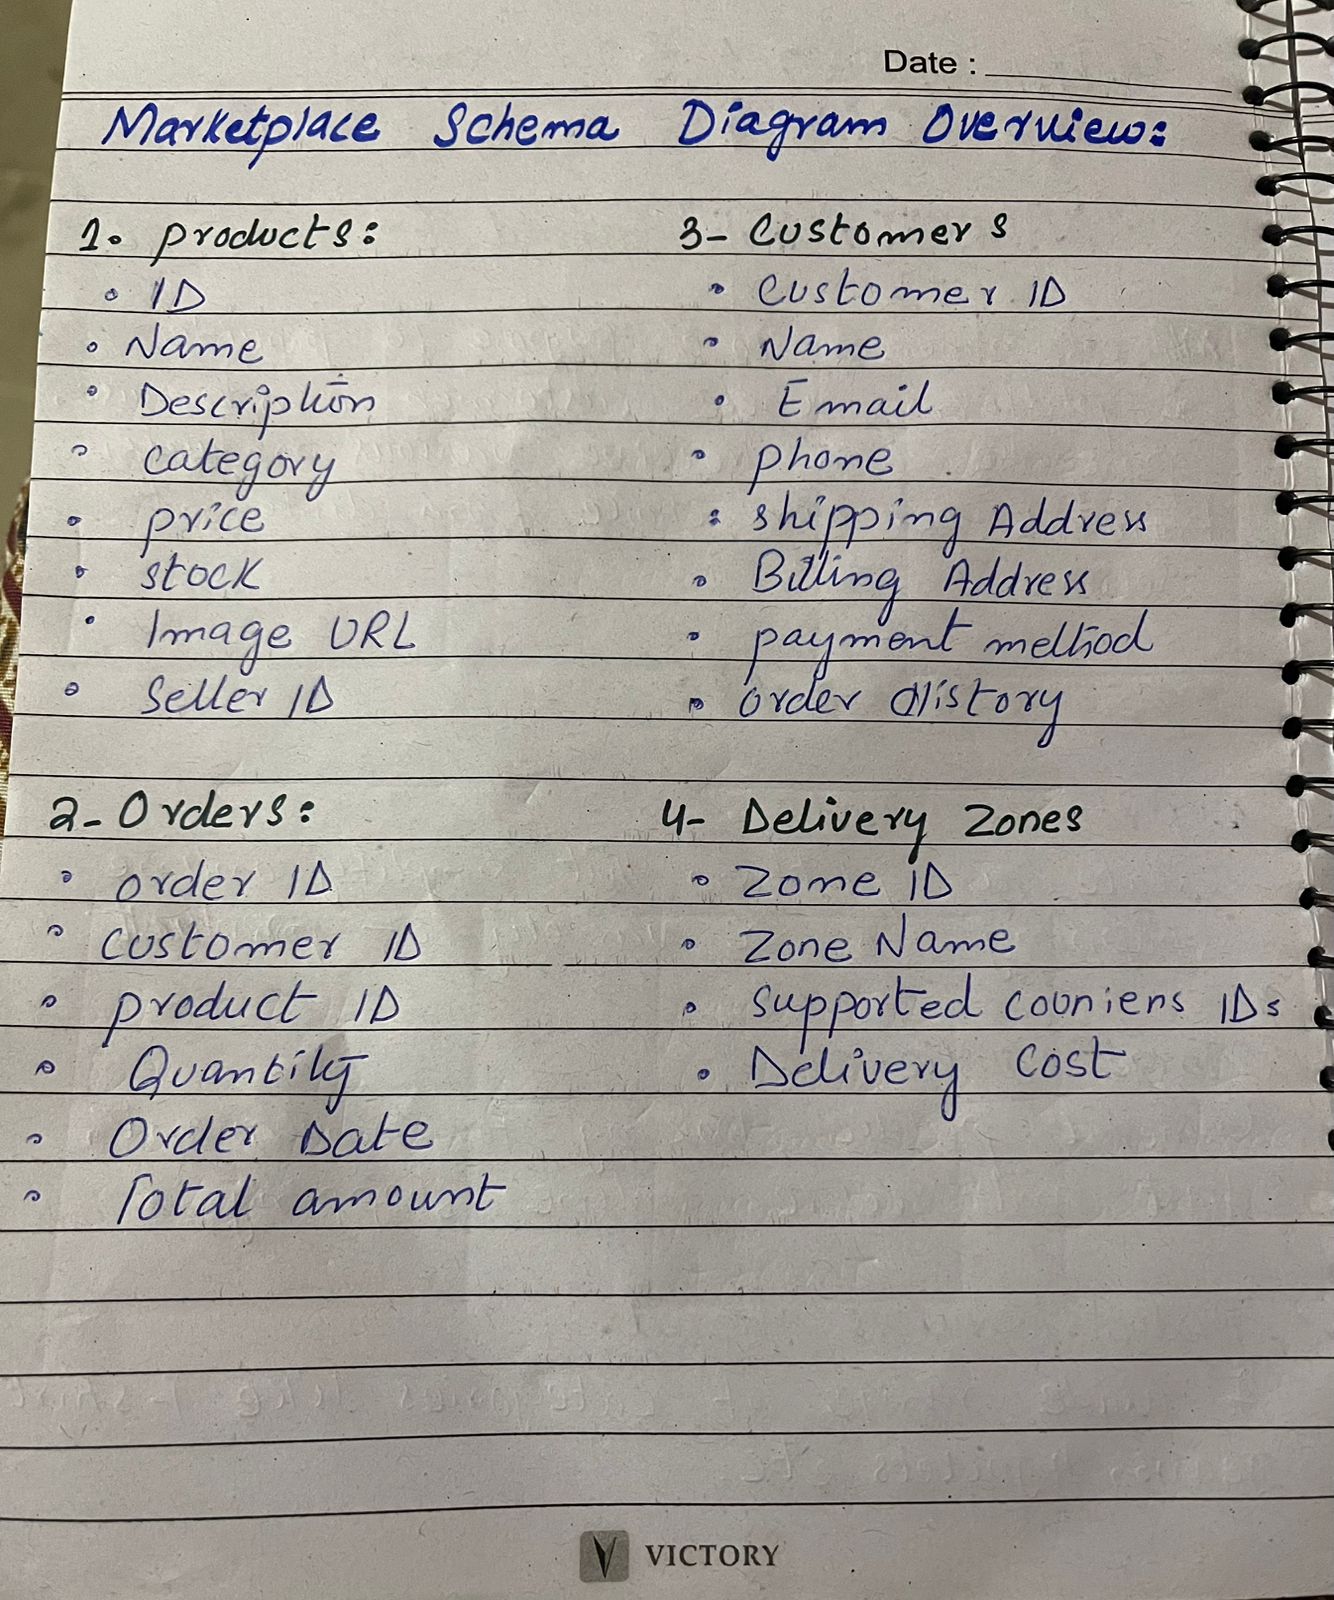 Date :
Marketplace Schema Diagram Overview:
1. products:
• ID
• Name
• Description
• category
• price
• stock
• Image URL
• Seller ID
2- Orders:
• order ID
• customer ID
• product ID
• Quantity
• Order Date
• Total amount
3- Customers
• Customer ID
• Name
• Email
• phone
• shipping Address
• Billing Address
• payment method
• order History
4- Delivery Zones
• Zone ID
• Zone Name
• supported couriers IDs
• Delivery Cost
VICTORY